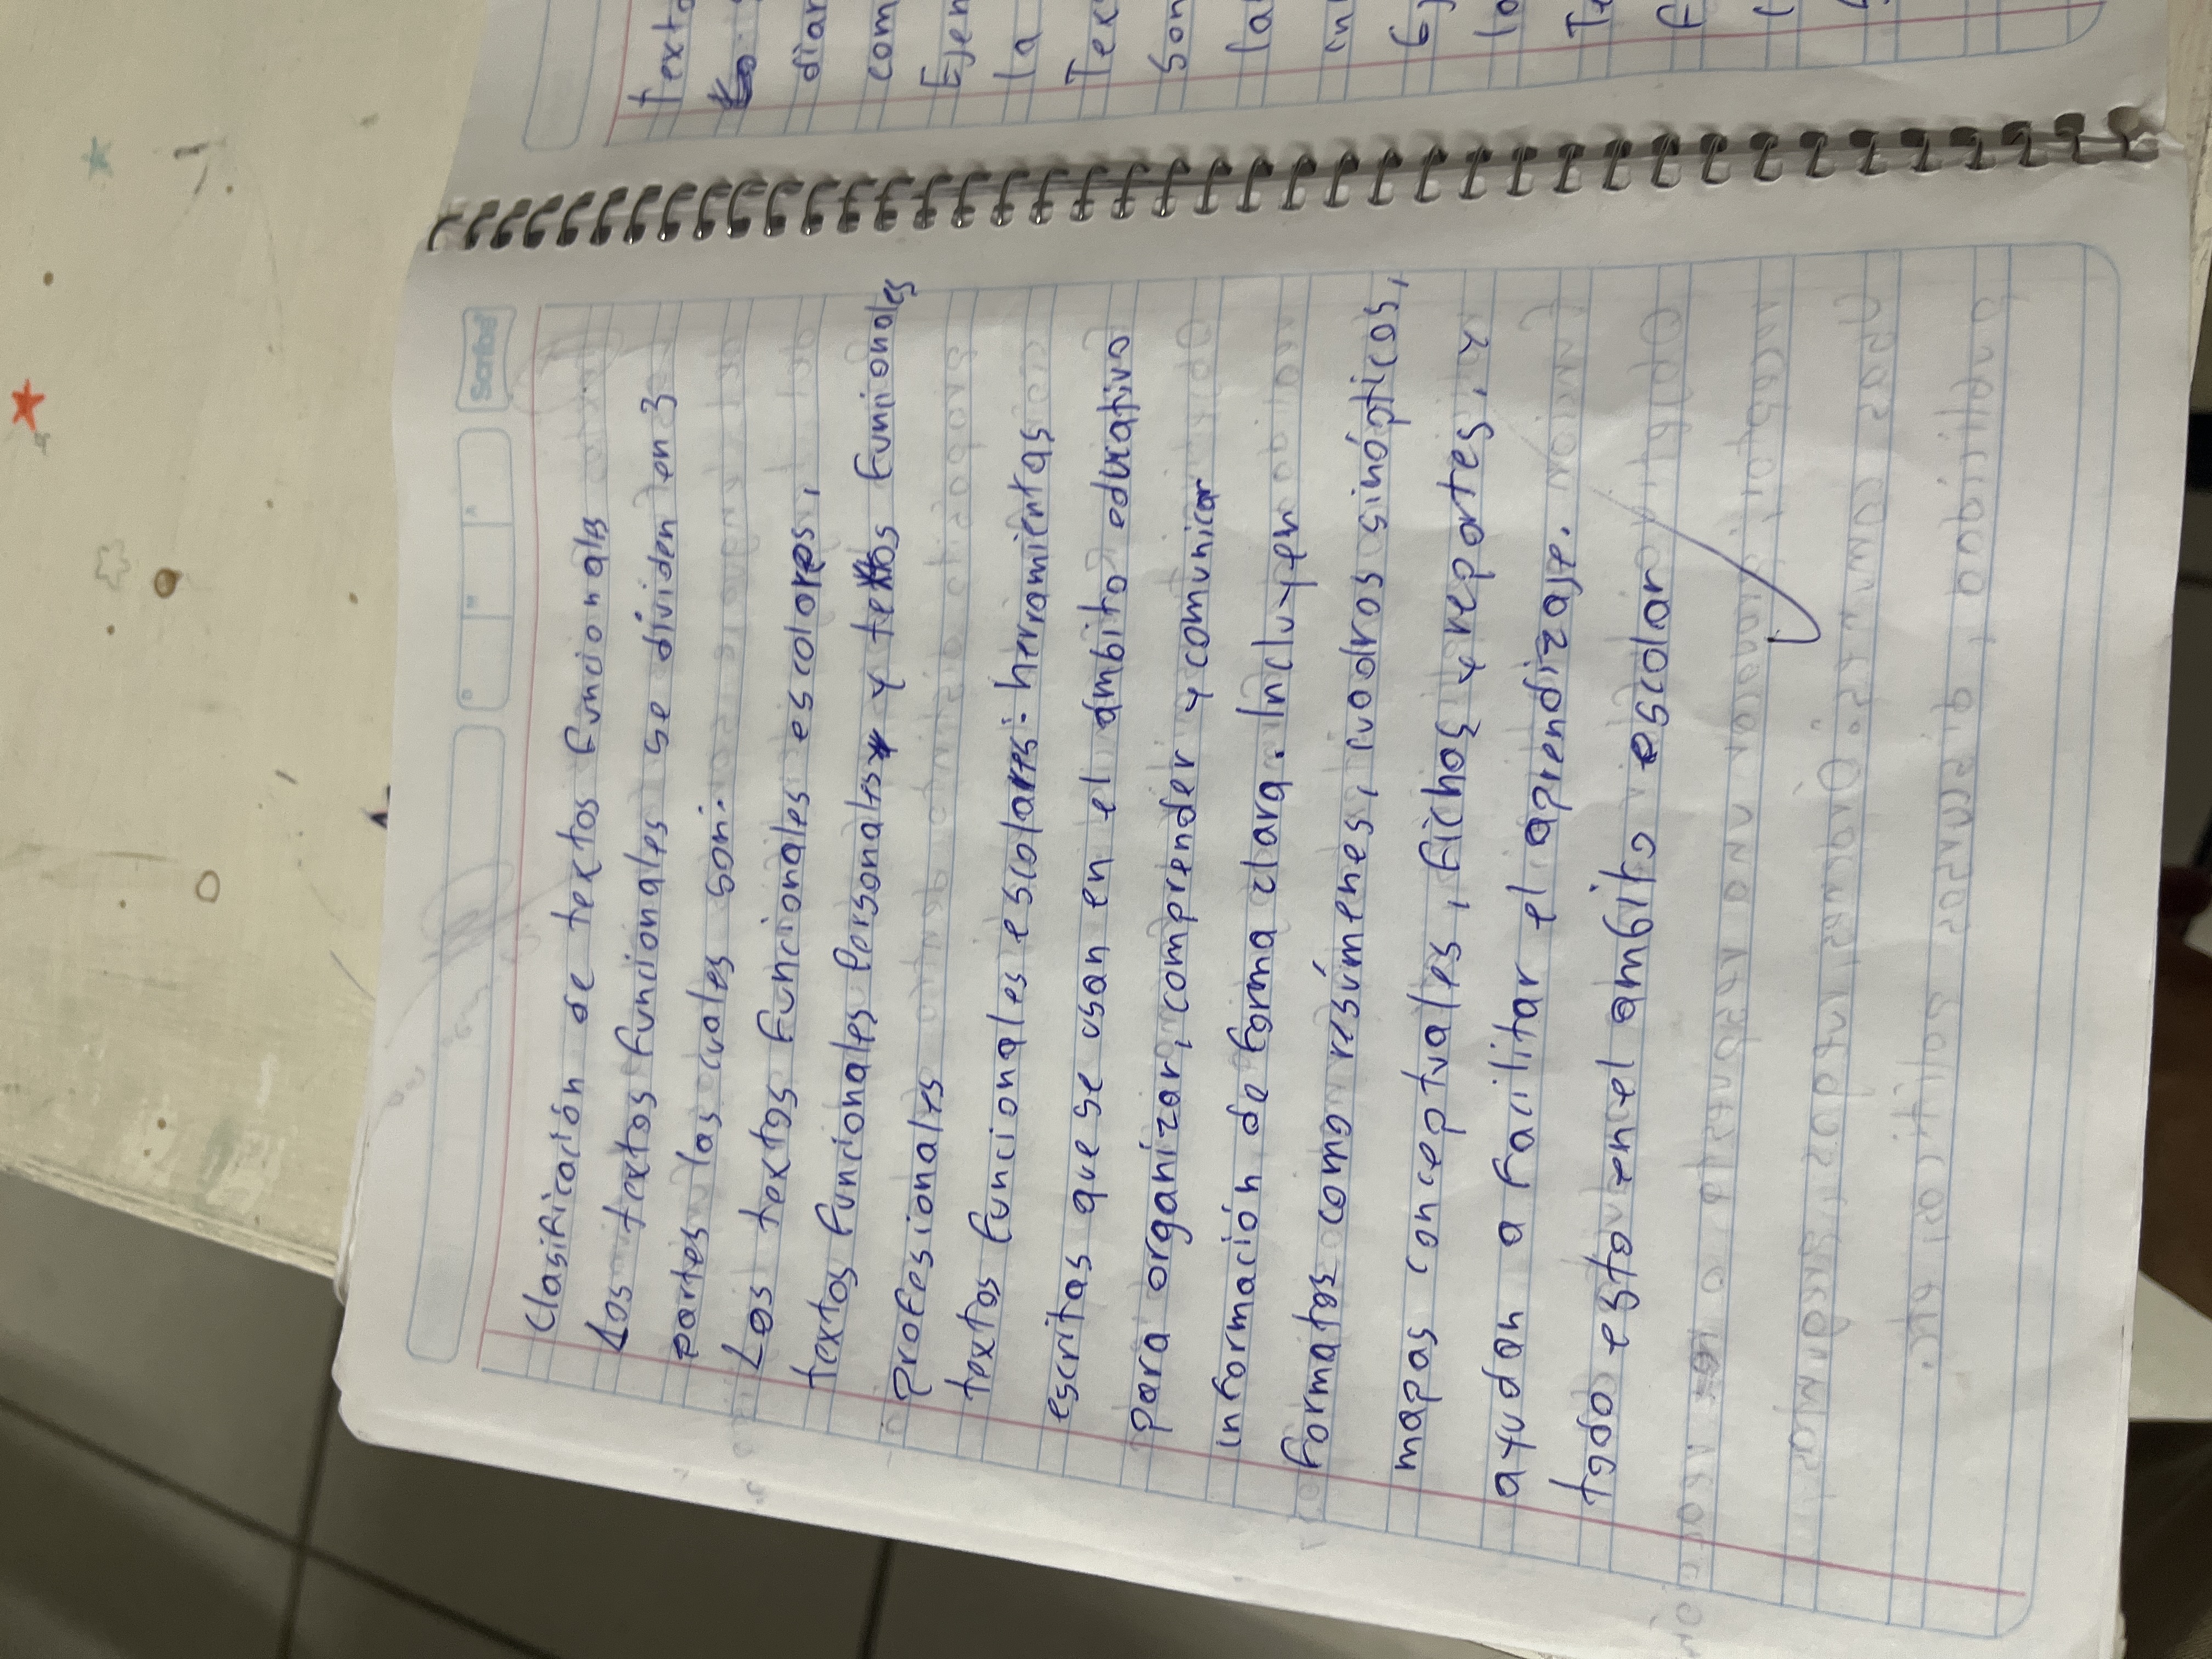 Scribe
Clasificación de textos funcionals
Los textos funcionales se dividen en 3
partes las cuales son:
Los textos funcionales escolares,
textos funcionales Personales y textos funcionales
Profesionales
textos funcionales escolares: herramientas
escritas que se usan en el ámbito educativo
para organizar, comprender y comunicar
información de forma clara. Incluyen
formatos como resúmenes, cuadros sinópticos,
mapas conceptuales, fichas y reportes, y
ayudan a facilitar el aprendizaje.
todo esto en el ambito escolar
Texto
diar
com
Ejem
la
Tex
Son
la
in
Ej
lo
Te